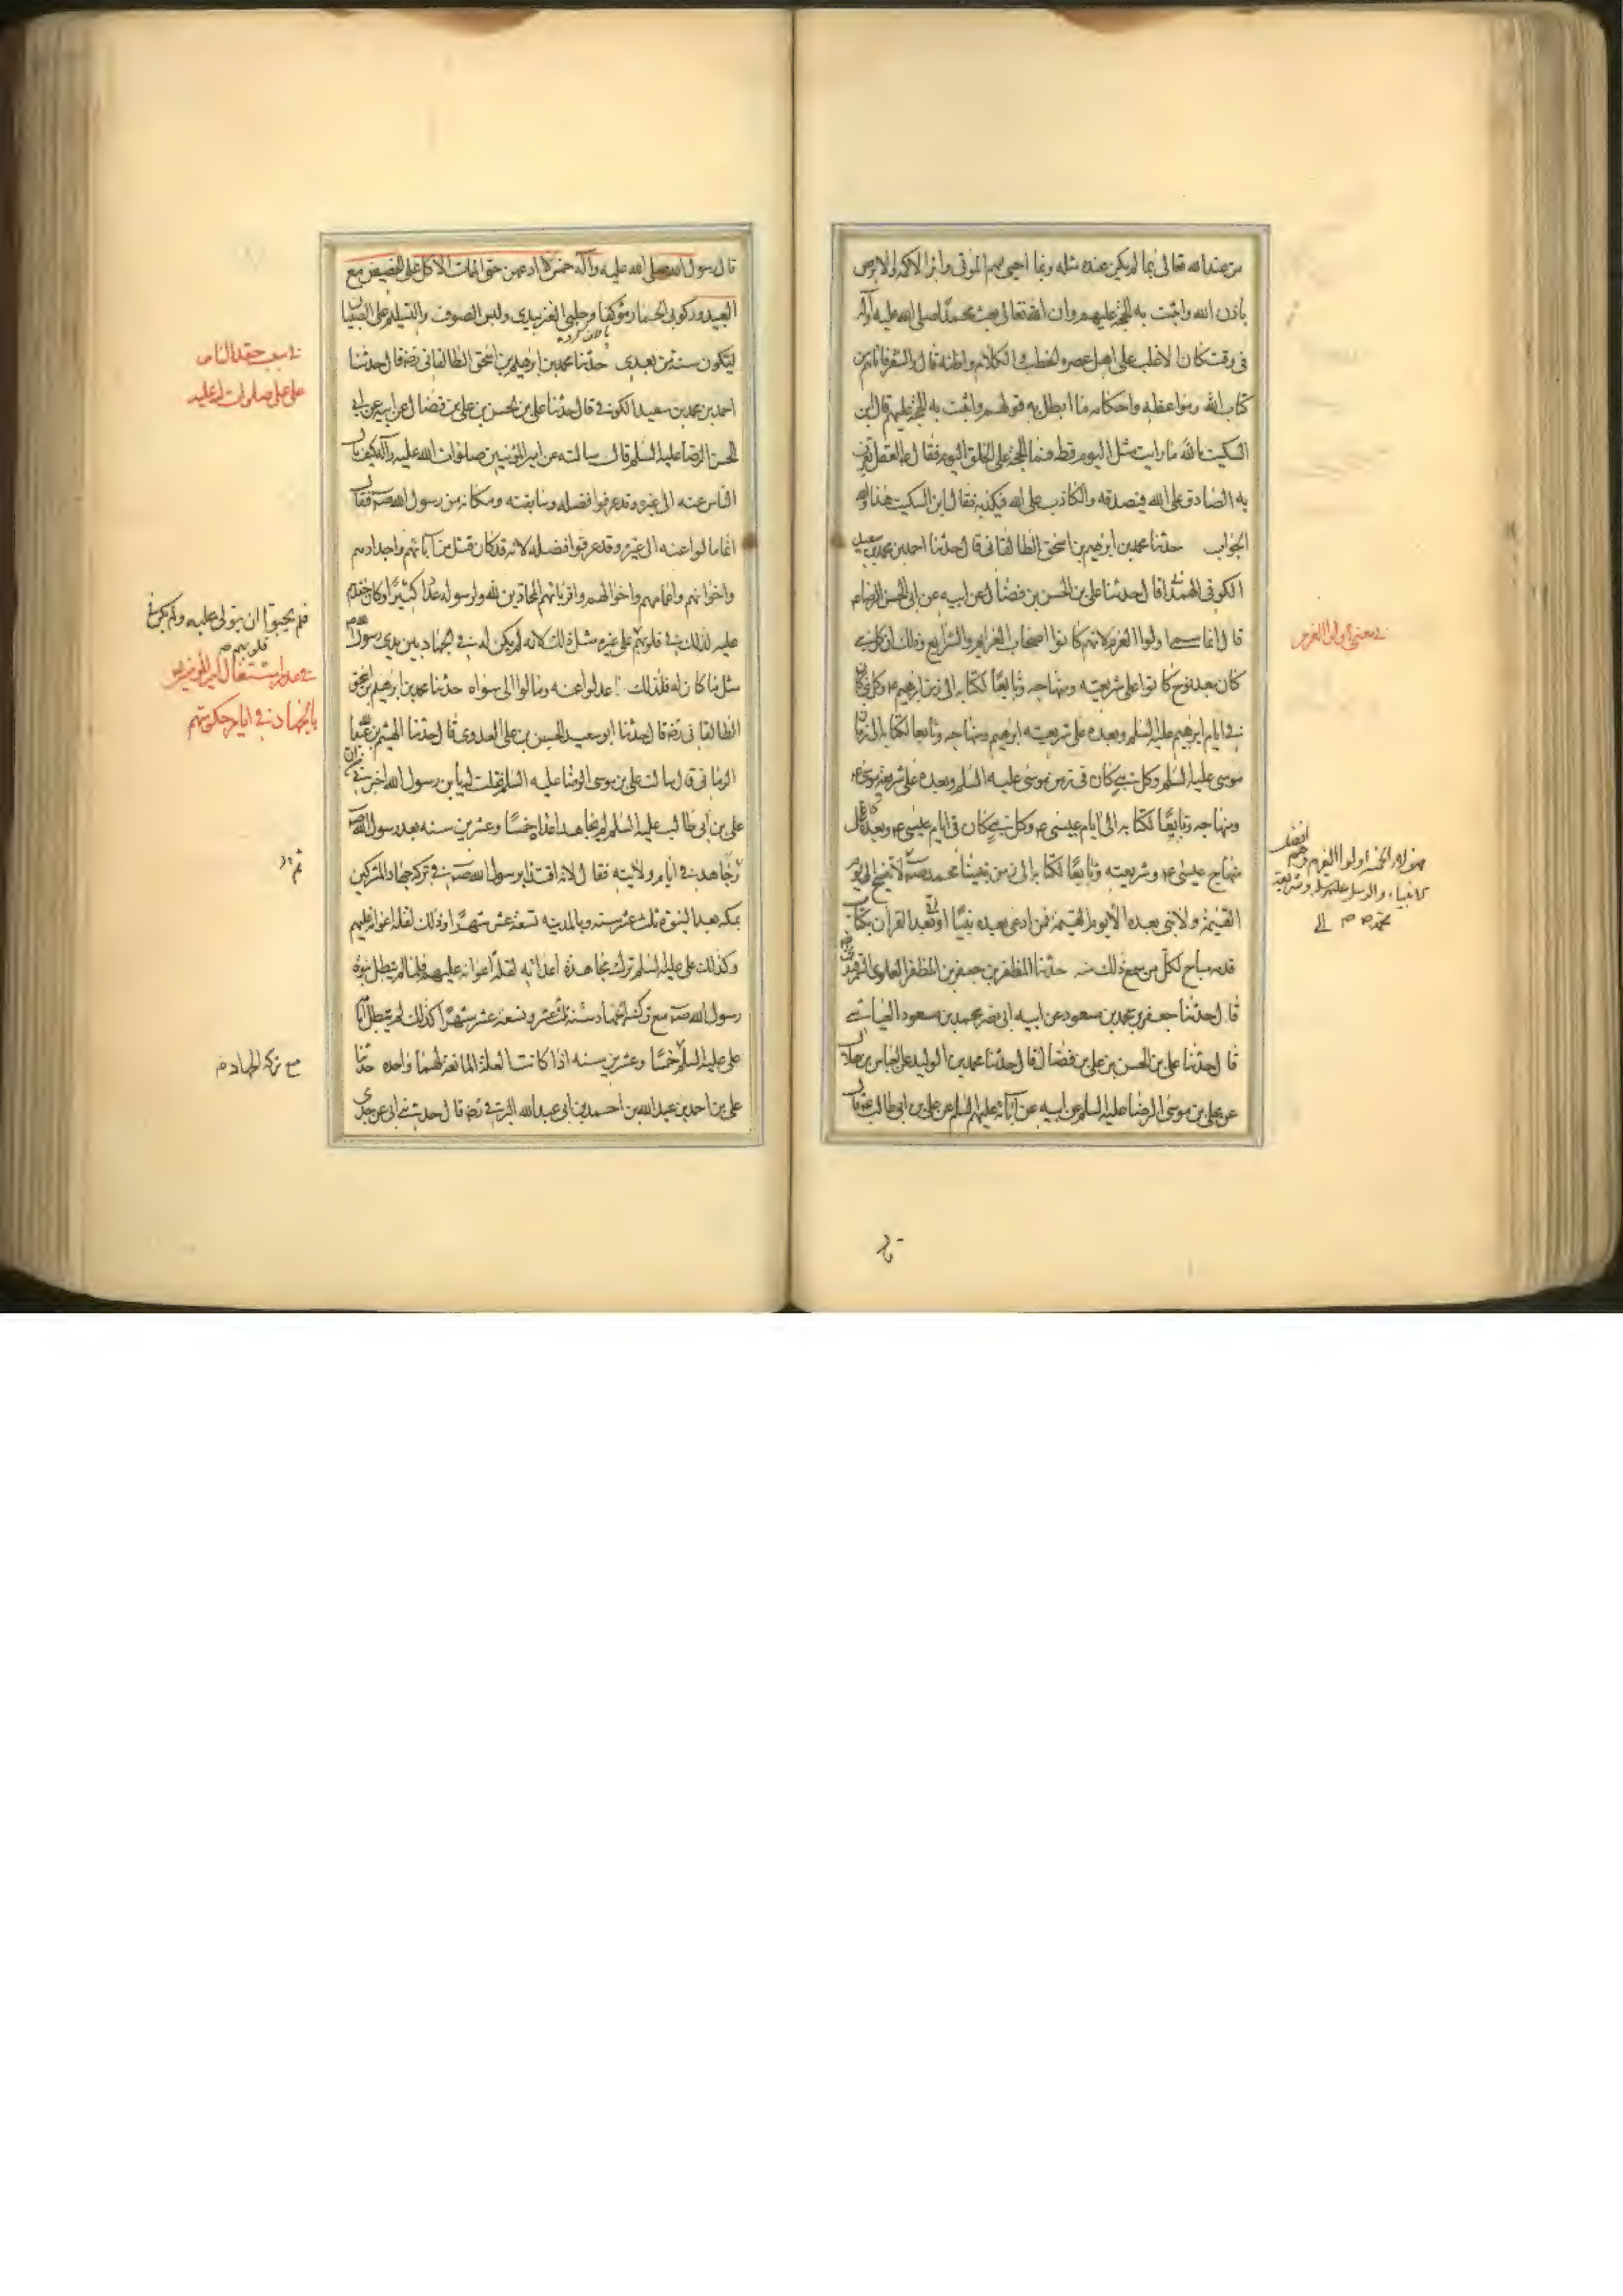 من عند الله تعالى بما لم يكن عنده مثله وبما احيى لهم الموتى وابرا الاكمه والابرص
باذن الله واثبت به الحجة عليهم وان الله تعالى بعث محمدا صلى الله عليه وآله
فى وقت كان الاغلب على اهل عصره الخطب والكلام واظنه قال والشعر فاتاهم من
كتاب الله ومواعظه واحكامه ما ابطل به قولهم واثبت به الحجة عليهم قال ابن
السكيت تالله ما رايت مثل اليوم قط فما الحجة على الخلق اليوم فقال ع العقل تعرف
به الصادق على الله فتصدقه والكاذب على الله فتكذبه فقال ابن السكيت هذا والله
الجواب حدثنا محمد بن ابرهيم بن اسحق الطالقانى قال حدثنا احمد بن محمد بن سعيد
الكوفى الهمدانى قال حدثنا على بن الحسن بن فضال عن ابيه عن ابى الحسن الرضا ع
قال انما سمى اولوا العزم لانهم كانوا اصحاب العزايم والشرايع وذلك ان كل نبى
كان بعد نوح كانوا على شريعته ومنهاجه وتابعا لكتابه الى زمن ابرهيم ع وكل نبى كان
فى ايام ابرهيم عليه السلم وبعده على شريعته ابرهيم ومنهاجه وتابعا لكتابه الى زمان
موسى عليه السلم وكل نبى كان فى زمن موسى عليه السلم وبعده على شريعة موسى ع
ومنهاجه وتابعا لكتابه الى ايام عيسى ع وكل نبى كان فى ايام عيسى ع وبعده كان على
منهاج عيسى ع وشريعته وتابعا لكتابه الى زمن نبينا محمد ص لا تنسخ الى يوم
القيمة ولا نبى بعده الا يوم القيمة فمن ادعى بعده نبيا او بعد القرآن بكتاب
فدمه مباح لكل من سمع ذلك منه حدثنا المظفر بن جعفر بن المظفر العلوى السمرقندى
قال حدثنا جعفر بن محمد بن مسعود عن ابيه ابى نصر محمد بن مسعود العياشى
قال حدثنا على بن الحسن بن على بن فضال قال حدثنا محمد بن الوليد عن العباس بن هلال
عن على بن موسى الرضا عليه السلم عن ابيه عن آبائه عليهم السلم عن على بن ابى طالب ع قال
فى معنى اولوا العزم
فهؤلاء الخمسة اولوا العزم وهم افضل
الانبياء والرسل عليهم السلم وشريعة
محمد ص الى
قال رسول الله صلى الله عليه وآله خمس لا ادعهن حتى الممات الاكل على الحضيض مع
العبيد وركوبى الحمار مؤكفا وحلبى العنز بيدى ولبس الصوف والتسليم على الصبيان
لتكون سنة من بعدى حدثنا محمد بن ابرهيم بن اسحق الطالقانى رضه قال حدثنا
احمد بن محمد بن سعيد الكوفى قال حدثنا على بن الحسن بن على بن فضال عن ابيه عن ابى
الحسن الرضا عليه السلم قال سالته عن امير المؤمنين صلوات الله عليه وآله كيف مال
الناس عنه الى غيره وقد عرفوا فضله وسابقته ومكانه من رسول الله ص فقال
انما مالوا عنه الى غيره وقد عرفوا فضله لانه قد كان قتل من آبائهم واجدادهم
واخوانهم واعمامهم واخوالهم واقربائهم المحادين لله ولرسوله عددا كثيرا وكان حقدهم
عليه لذلك فى قلوبهم على غيره مثل ذلك لانه لم يكن له فى الجهاد بين يدى رسول الله ص
مثل ما كان له فلذلك عدلوا عنه ومالوا الى سواه حدثنا محمد بن ابرهيم بن اسحق
الطالقانى رضه قال حدثنا ابو سعيد الحسن بن على العدوى قال حدثنا الهيثم بن عبد الله
الرمانى قال سالت على بن موسى الرضا عليه السلم فقلت له يا بن رسول الله اخبرنى عن
على بن ابى طالب عليه السلم لم لم يجاهد اعداءه خمسا وعشرين سنه بعد رسول الله ص
وجاهد فى ايام ولايته فقال لانه اقتدا برسول الله ص فى تركه جهاد المشركين
بمكه بعد النبوة ثلث عشر سنه وبالمدينه تسعة عشر شهرا وذلك لقلة اعوانه عليهم
وكذلك على عليه السلم ترك مجاهدة اعدائه لقلة اعوانه عليهم فلما لم يبطل نبوة
رسول الله ص مع تركه الجهاد سنة ثلث عشر وتسعة عشر شهرا كذلك لم يبطل امامة
على عليه السلم خمسا وعشرين سنه اذا كانت العلة المانعة لهما واحده حدثنا
على بن احمد بن عبد الله بن احمد بن ابى عبد الله البرقى رضه قال حدثنى ابى عن جدى
فى سبب حقد الناس
على على صلوات الله عليه
فلم يحبوا ان يتولى عليهم ولم يكن فى
قلوبهم
فى عدم اشتغال امير المؤمنين
بالجهاد فى ايام حكومتهم
ثم
مع تركه الجهاد